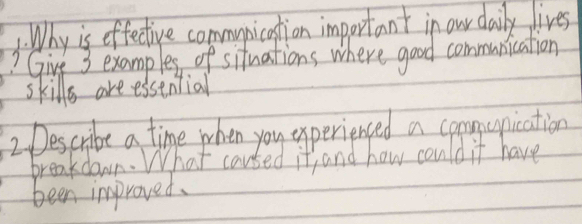 1. Why is effective communication important in our daily lives
? Give 3 examples of situations where good communication
skills are essential
2. Describe a time when you experienced a communication
breakdown. What caused it, and how could it have
been improved.